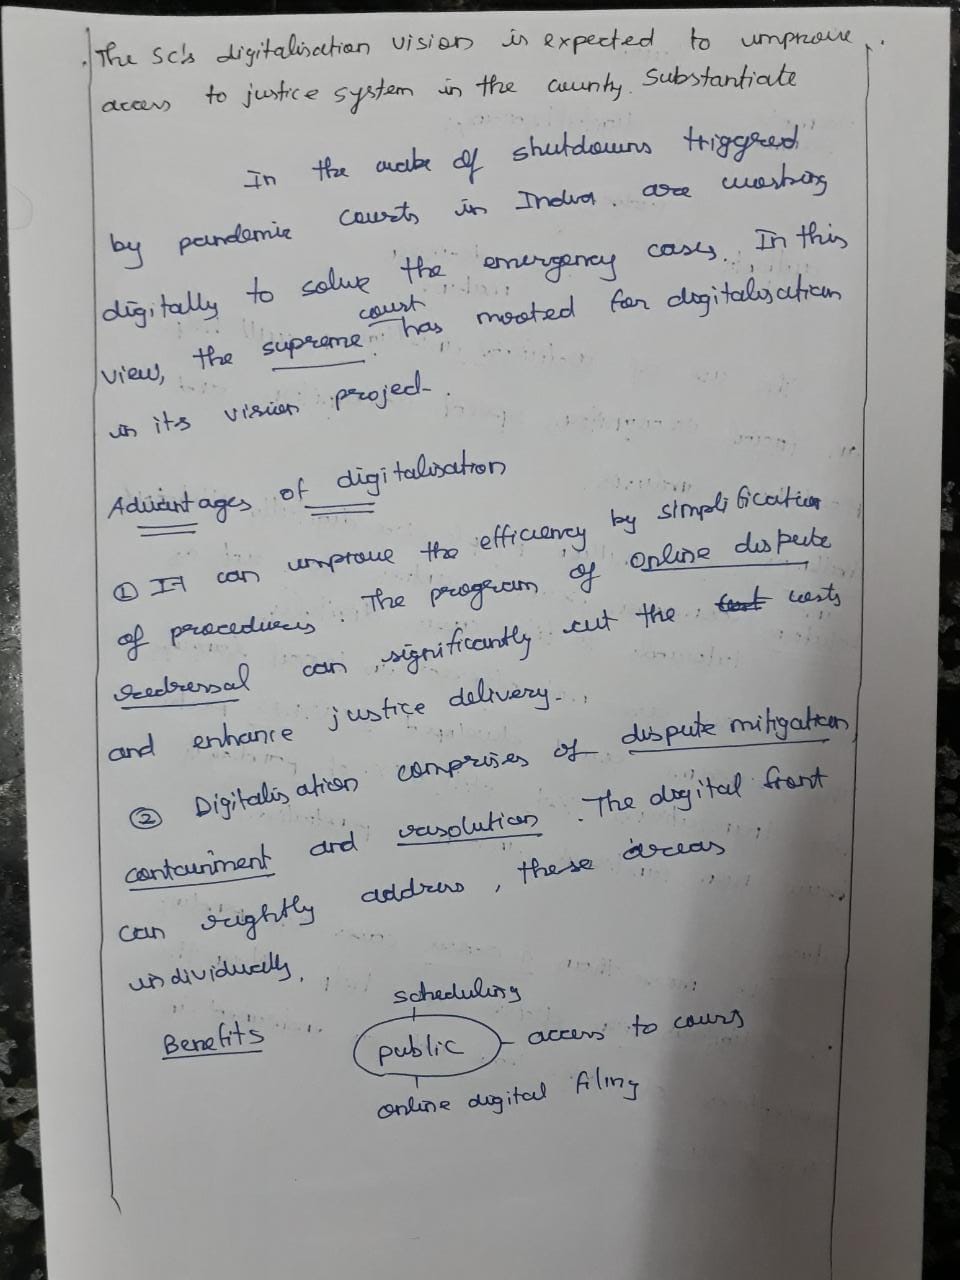 The SC's digitalisation vision is expected to improve
access to justice system in the country. Substantiate
In the wake of shutdowns triggred
by pandemic courts in India are working
digitally to solve the emergency cases. In this
view, the supreme court has mooted for digitalisation
in its vision project.
Advantages of digitalisation
① It can improve the efficiency by simplification
of procedures. The program of online dispute
redressal can significantly cut the costs
and enhance justice delivery.
② Digitalisation comprises of dispute mitigation
containment and resolution. The digital front
can rightly address, these areas
individually.
scheduling
Benefits public - access to cours
online digital filing